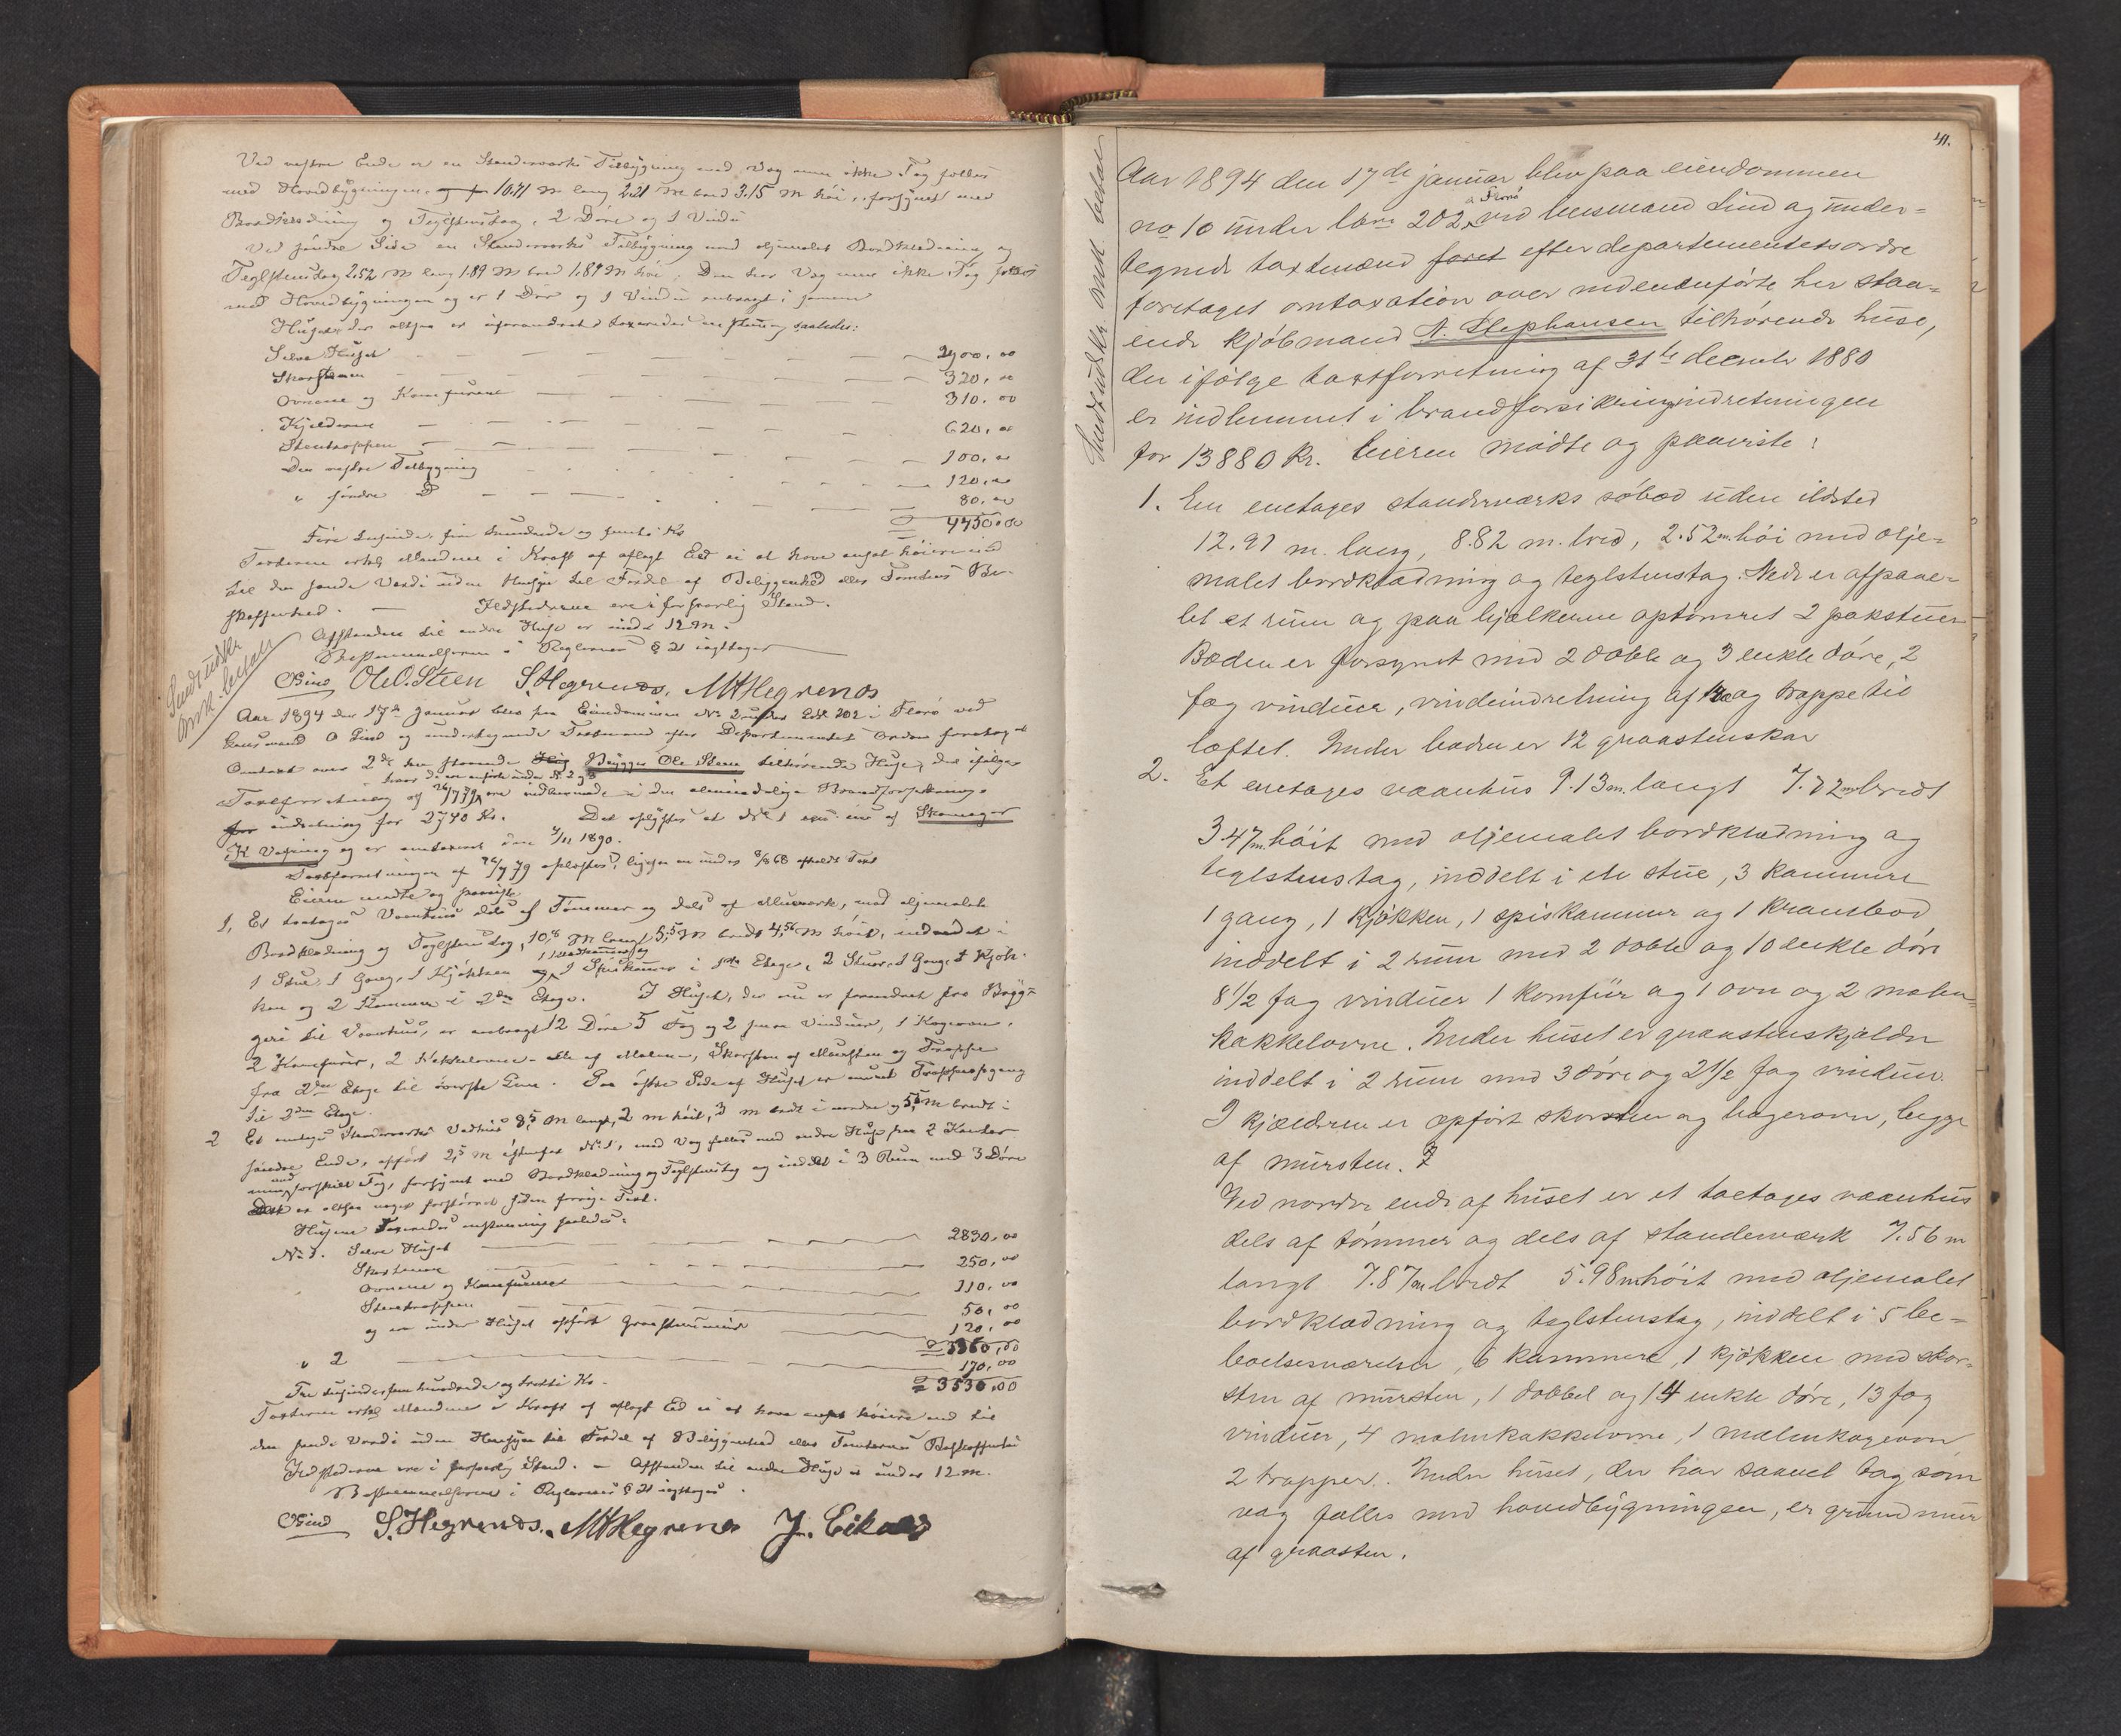 Ved vestre Ende er en Standerværks Tilbygning med Væg men ikke Tag fælles
med Hovedbygningen, 10.71 m lang 2.21 m bred 3.15 m høi, forsynet med
Bordklædning og Teglstenstag, 2 Døre og 1 Vindu
Ved søndre Side en Standerværks Tilbygning med oljemalet Bordklædning og
Teglstenstag 2.52 m lang 1.89 m bred 1.89 m høi. Den har Væg men ikke Tag fælles
med Hovedbygningen og er 1 Dør og 1 Vindu anbragt i samme
Huset der altsaa er uforandret taxeredes enstemmig saaledes:
Selve Huset 2900,00
Skorstenen 320,00
Ovnene og Komfurene 310,00
Kjelderne 620,00
Stentrappen 100,00
Den vestre Tilbygning 120,00
" søndre D 80,00
4450,00
Fire tusinde, fire hundrede og femti Kr
Taxterne erkl Mændene i Kraft af aflagt Ed ei at have ansat høiere end
til den sande Værdi uden Hensyn til Fordel af Beliggenhed eller Tomtens Be-
skaffenhed. — Ildstederne ere i forsvarlig Stand.
Afstanden til andre Huse er under 12 M.
Bestemmelserne i Reglernes § 21 iagttages
Sendt udskr
omk. betalt
OLind Ole O. Steen S. Hegrenæs. MHHegrenæs
Aar 1894 den 17de Januar blev paa Eiendommen No 2 under Lbr 202 i Florø ved
Lensmand O Lind og undertegnede Taxtmænd efter Departementets Ordre foretaget
Omtaxt over 2de her staaende Brygger Ole Steen tilhørende Huse, der ifølge
hvor de ere anførte under No 2 og 3
Taxtforretning af 26/7 79 ere indlemmede i den almindelige Brandforsikrings-
for indretning for 2740 Kr. Det oplystes at No 1 eies nu af Skomager
K Vefring og er omtaxeret den 4/11 1890.
Taxtforretningen af 26/7 79 oplæstes, ligesaa en under 8/8 68 afholdt Taxt
Eieren mødte og paaviste
1, Et toetages Vaanhus dels af Tømmer og dels af Murværk, med oljemalet
Bordklædning og Teglstenstag, 10,8 m langt 5,5 m bredt 4,56 m høit, indredet i
1 Stue, 1 Gang, 1 Kjøkken og 1 Spiskammer i 1ste Etage, 2 Stuer, 1 Gang, 1 Kjøk-
ken og 2 Kammer i 2den Etage. I Huset, der nu er forandret fra Bryg-
geri til Vaanhus, er anbragt 12 Døre 5 Fag og 2 smaa Vinduer, 1 Kogeovn,
2 Komfurer, 2 Kakkelovne - alle af Malm, Skorsten af Mursten og Trappe
fra 2den Etage til øverste Lem. Paa østre Side af Huset er muret Trappeopgang
til 2den Etage.
2 Et enetages Standerværks Vedhus 8,5 m langt, 2 m høit, 3 m bredt i nordre og 5,5 m bredt i
søndre Ende, opført 2,5 m østenfor No 1, med Væg fælles med andre Huse paa 2 Kanter
men med forskilt Tag, forsynet med Bordklædning og Teglstenstag og inddelt i 3 Rum med 3 Døre
Det er altsaa noget forstørret siden forrige Taxt.
Husene Taxeredes enstemmig saaledes:
No 1. Selve Huset 2830,00
Skorstenen 250,00
Ovnene og Komfurerne 110,00
Stentrappen 50,00
og en under Huset opført Graastensmur 120,00
3360,00
" 2 170,00
3530,00
Tre tusinde fem hundrede og tretti Kr.
Taxterne erkl Mændene i Kraft af aflagt Ed ei at have ansat høiere end til
den sande Værdi uden Hensyn til Fordel af Beliggenhed eller Tomternes Beskaffenhed
Ildstederne ere i forsvarlig Stand. — Afstanden til andre Huse er under 12 m.
Bestemmelserne i Reglernes § 21 iagttages.
OLind S. Hegrenæs. MHHegrenæs J. Eikaas
41.
Sendt udskr. omk betalt
Aar 1894 den 17de januar blev paa eiendommen
i Florø
no 10 under lbn 202 ved lensmand Lind og under=
tegnede taxtmænd foret efter departementets ordre
foretaget omtaxation over nedenanførte her staa=
ende kjøbmand A. Stephansen tilhørende huse,
der ifølge taxtforretning af 31te decembr 1880
er indlemmet i brandforsikringsindretningen
for 13880 kr. Eieren mødte og paaviste:
1. En enetages standerværks søbod uden ildsted
12.91 m. lang, 8.82 m. bred, 2.52 m. høi med olje=
malet bordklædning og teglstenstag. Nede er afpane=
let et rum og paa bjelkerne optømret 2 pakstuer
Boden er forsynet med 2 doble og 3 enkle døre, 2
fag vinduer, vindeindretning af træ og trappe til
loftet. Under boden er 12 graastenskar
2. Et enetages vaanhus 9.13 m. langt 7.72 m bredt
3.47 m. høit med oljemalet bordklædning og
teglstenstag, inddelt i ete stue, 3 kammere
1 gang, 1 kjøkken, 1 spiskammer og 1 krambod
inddelt i 2 rum med 2 doble og 10 enkle døre
8 1/2 fag vinduer 1 komfür og 1 ovn og 2 malm=
kakkelovne. Under huset er graastenskjælder
inddelt i 2 rum med 3 døre og 2 1/2 fag vinduer.
I kjælderen er opført skorsten og bagerovn, begge
af mursten.
Ved nordre ende af huset er et toetages vaanhus
dels af tømmer og dels af standerværk 7.56 m
langt 7.87 m bredt 5.98 m høit med oljemalet
bordklædning og teglstenstag, inddelt i 5 be=
boelsesværelser, 6 kammere, 1 kjøkken med skor-
sten af mursten, 1 dobbel og 14 enkle døre, 13 fag
vinduer, 4 malmkakkelovne, 1 malmkogeovn
2 trapper. Under huset, der har saavel tag som
væg fælles med hovedbygningen, er grundmur
af graasten.